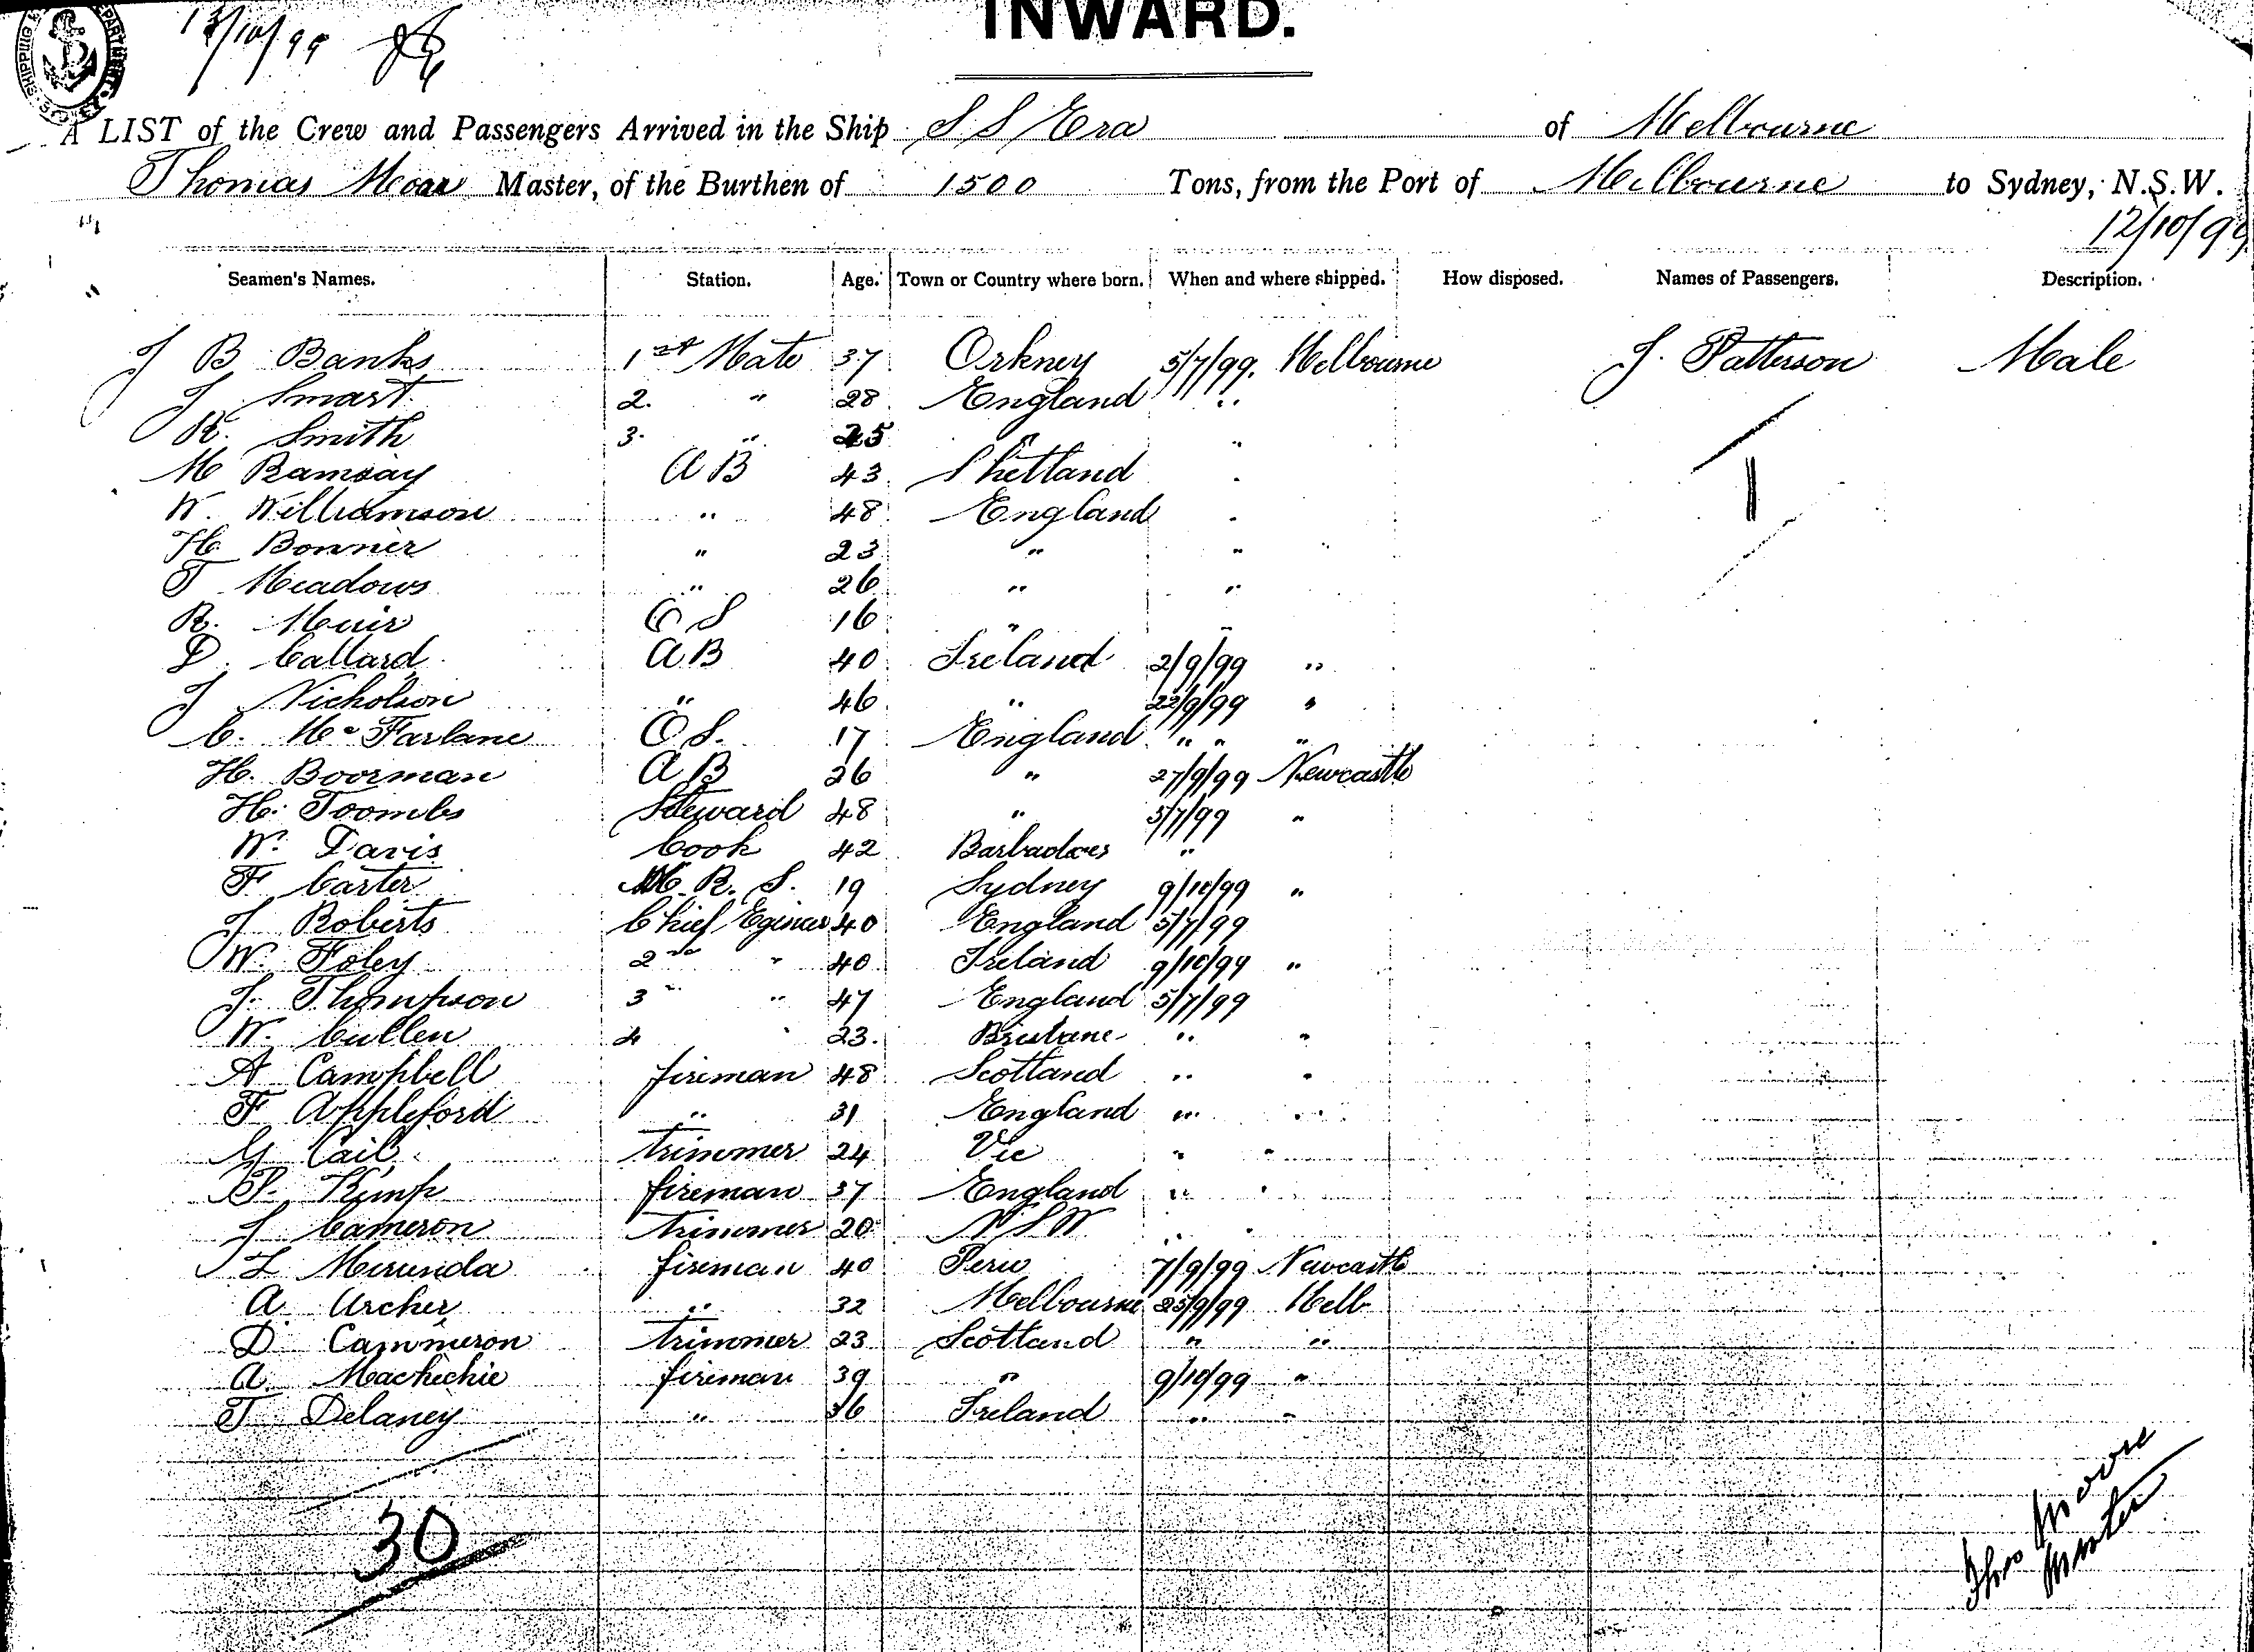 INWARD.
12/10/99
A LIST of the Crew and Passengers Arrived in the Ship S S Era of Melbourne
Thomas Master, of the Burthen of 1500 Tons, from the Port of Melbourne to Sydney, N.S.W.
12/10/99
Seamen's Names. Station. Age. Town or Country where born. When and where shipped. How disposed. Names of Passengers. Description.
J B Banks 1st Mate 37 Orkney 5/7/99. Melbourne J. Patterson Male
J Smart 2. " 28 England "
R. Smith 3. " 25 " "
M Ramsay A B 43 Shetland "
W. Williamson " 48 England "
1
H Bonner " 23 " "
T Meadows " 26 " "
R. Muir O S 16 " "
D. Callard A B 40 Ireland 2/9/99 "
J Nicholson " 46 " 22/9/99 "
C. McFarlane O S. 17 England " " "
H. Boorman A B 26 " 27/9/99 Newcastle
H. Toombs Steward 48 " 5/7/99 "
W. Davis Cook 42 Barbadoes "
F Carter M. R. S. 19 Sydney 9/10/99 "
J Roberts Chief Eginer 40 England 5/7/99
W. Foley 2nd " 40 Ireland 9/10/99 "
J. Thompson 3 " 47 England 5/7/99
W. Cullen 4 " 23. Brisbane " "
A Campbell fireman 48 Scotland " "
F Appleford " 31 England " "
G Cail trimmer 24 Vic " "
P. Kimp fireman 37 England " "
J Cameron trimmer 20 N S W " "
L Merunda fireman 40 Peru 7/9/99 Newcastle
A. Archer " 32 Melbourne 25/9/99 Melb
D Cammeron trimmer 23 Scotland " "
A. Mackichie fireman 39 " 9/10/99 "
T Delaney " 36 Ireland " "
30
Thos Moore
Master